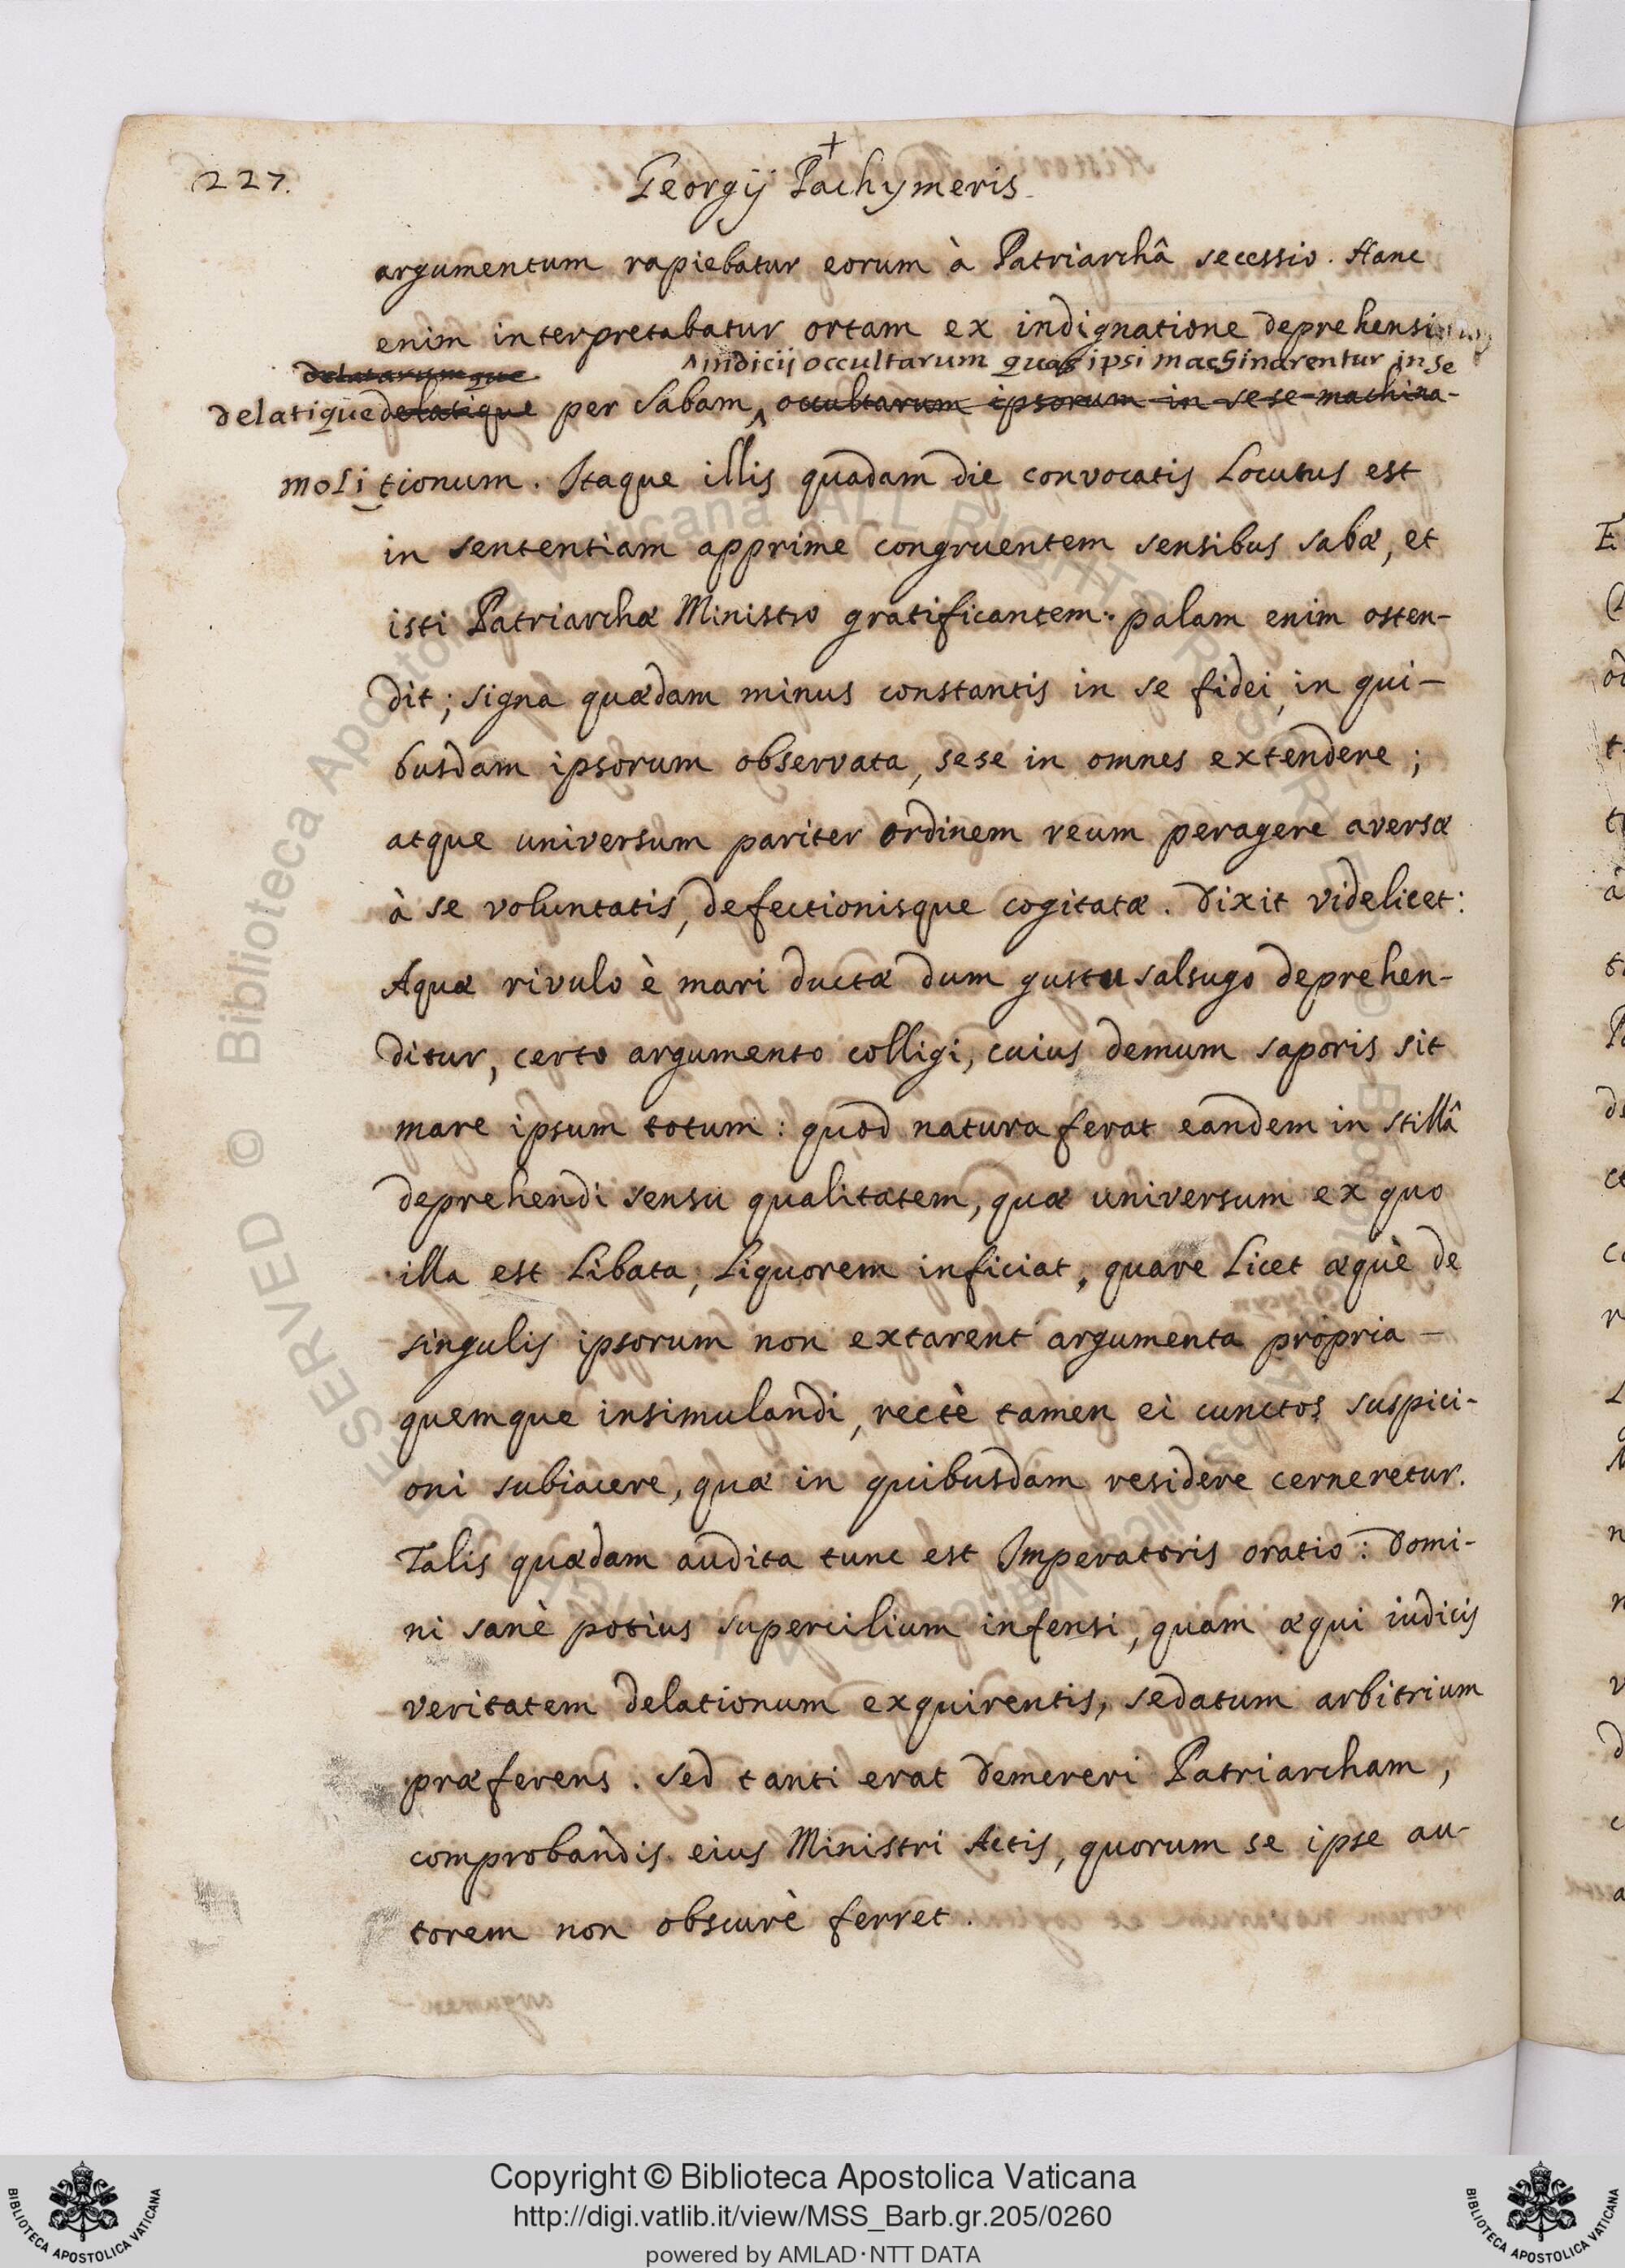 227.
+
Georgij Pachymeris
argumentum rapiebatur eorum à Patriarchâ secessio. Hanc
enim interpretabatur ortam ex indignatione deprehensi
indicij occultarum quas ipsi machinarentur in se
delatarumque
delatique delatique per Sabam occultarum ipsorum in sese machina-
moli tionum. Itaque illis quadam die convocatis Locutus est
in sententiam apprime congruentem sensibus sabæ, et
isti Patriarchæ Ministro gratificantem: palam enim osten-
dit; signa quædam minus constantis in se fidei, in qui-
busdam ipsorum observata, sese in omnes extendere;
atque universum pariter ordinem reum peragere aversæ
à se voluntatis, defectionisque cogitatæ. Dixit videlicet:
Aquæ rivulo è mari ductæ dum gustu salsugo deprehen-
ditur, certo argumento colligi, cuius demum saporis sit
mare ipsum totum: quod natura ferat eandem in stillâ
deprehendi sensu qualitatem, quæ universum ex quo
illa est Libata, Liquorem inficiat, quare Licet æquè de
singulis ipsorum non extarent argumenta propria
quemque insimulandi, rectè tamen ei cunctos suspici-
oni subiacere, quæ in quibusdam residere cerneretur.
Talis quædam audita tunc est Imperatoris oratio: Domi-
ni sanè potius supercilium infensi, quam æqui iudicis
veritatem delationum exquirentis, sedatum arbitrium
præferens. Sed tanti erat demereri Patriarcham,
comprobandis eius Ministri Actis, quorum se ipse au-
torem non obscurè ferret.
Copyright © Biblioteca Apostolica Vaticana
http://digi.vatlib.it/view/MSS_Barb.gr.205/0260
powered by AMLAD·NTT DATA
BIBLIOTECA APOSTOLICA VATICANA
BIBLIOTECA APOSTOLICA VATICANA